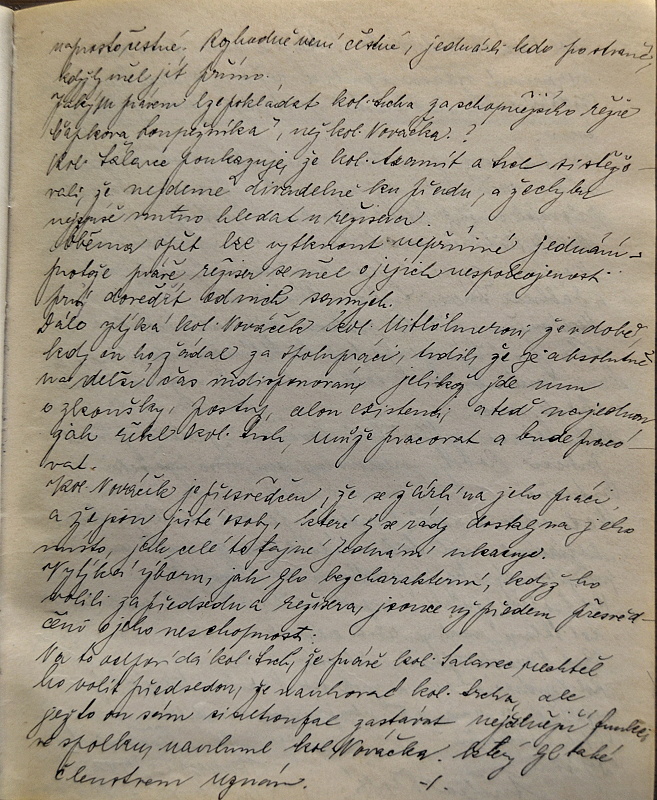 naprosto čestné. Rozhodně není čestné, jedná-li kdo po straně,
když měl jít přímo.
Jakým právem lze pokládat kol. Trcha za schopnějšího režie
"Čapkova Loupežníka", než kol. Nováčka?
Kol. Šalanc poukazuje, že kol. a Trch si stěžo-
vali, že nejdeme divadelně ku předu, a že chybu
nejspíše nutno hledat u režisera.
Oběma opět lze vytknout nepřímé jednání -
protože právě režiser se měl o jejich nespokojenosti
prvý dovědět od nich samých.
Dále vytýká kol. Nováček kol. že v době,
kdy on ho žádal za spolupráci, tvrdil, že je absolutně
na delší čas indisponovaný jelikož jde mu
o zkoušky, postup, celou existenci, a teď najednou
jak řekl kol. Trch, může pracovat a bude praco-
vat.
Kol. Nováček je přesvědčen, že se žárlí na jeho práci
a že jsou jisté osoby, které by se rády dostaly na jeho
místo, jak celé to tajné jednání ukazuje.
Vytýká výboru, jak bylo bezcharakterní, když ho
volili za předsedu a režisera, jsouce už předem přesvěd-
čeni o jeho neschopnosti.
Na to odpovídá kol. Trch, že právě kol. Šalanc nechtěl
ho volit předsedou, že navrhoval kol. Trcha, ale
ježto on sám si netroufal zastávat nejtěžší funkci
ve spolku, navrhnul kol. Nováčka, který byl také
členstvem uznán. -/.